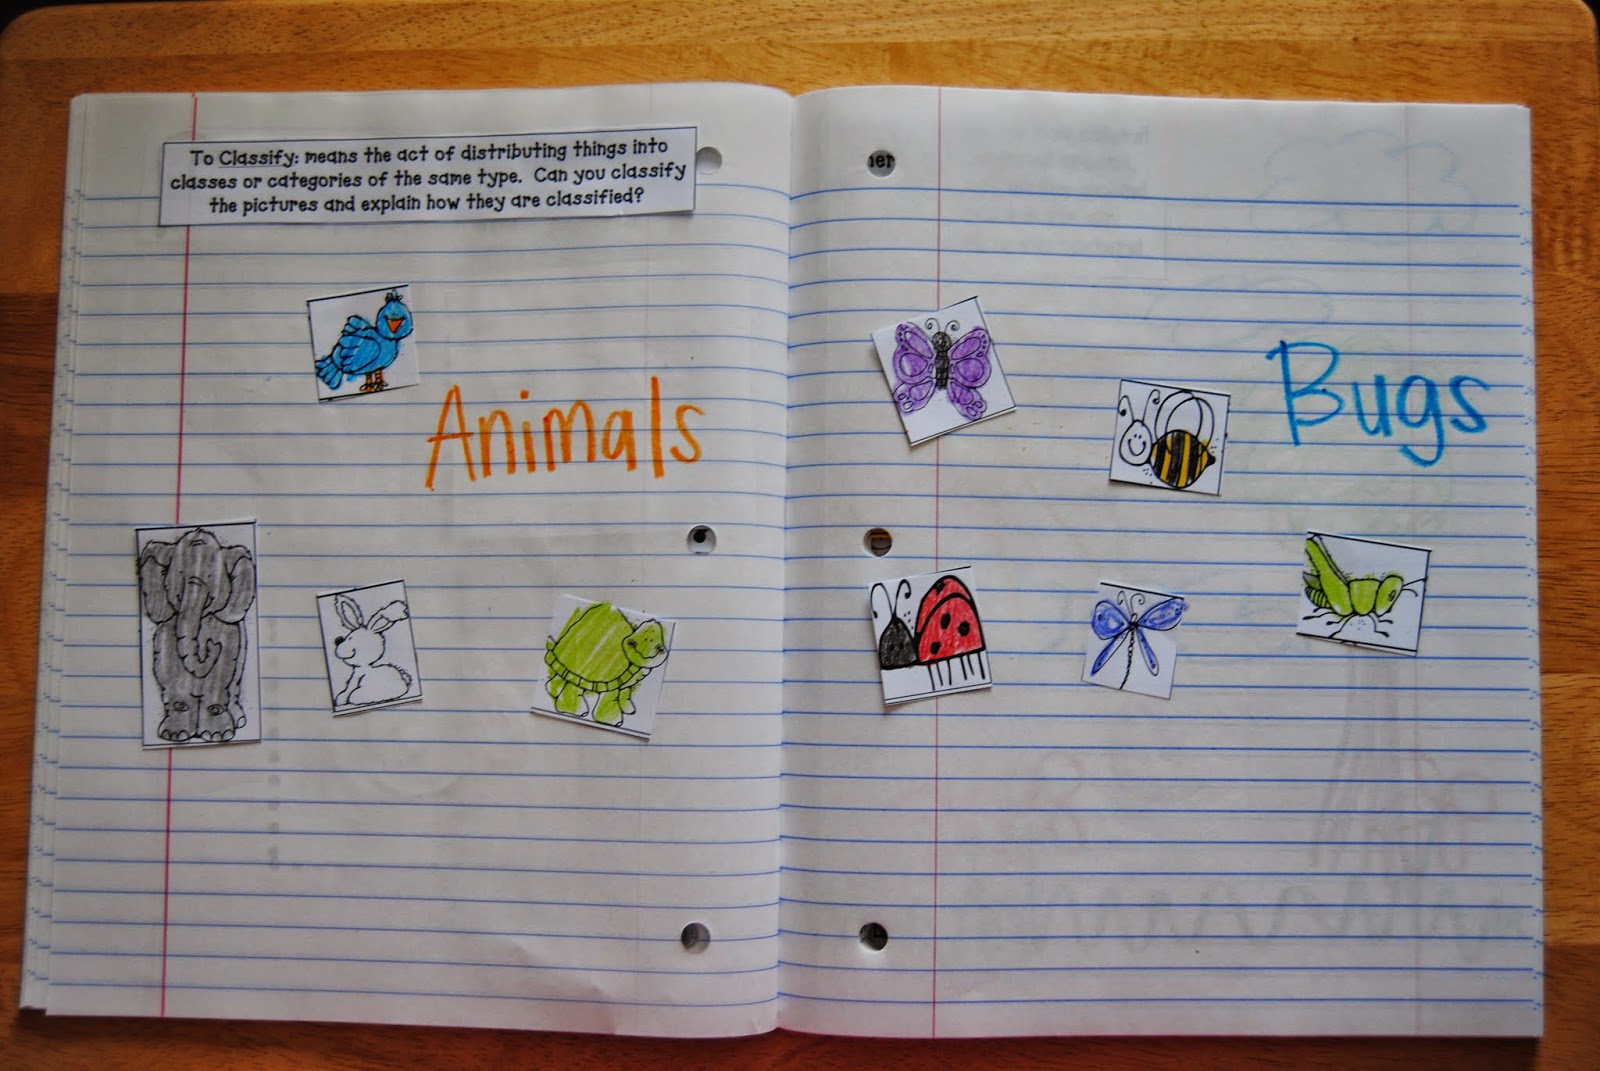 To Classify: means the act of distributing things into
classes or categories of the same type. Can you classify
the pictures and explain how they are classified?
Animals
Bugs